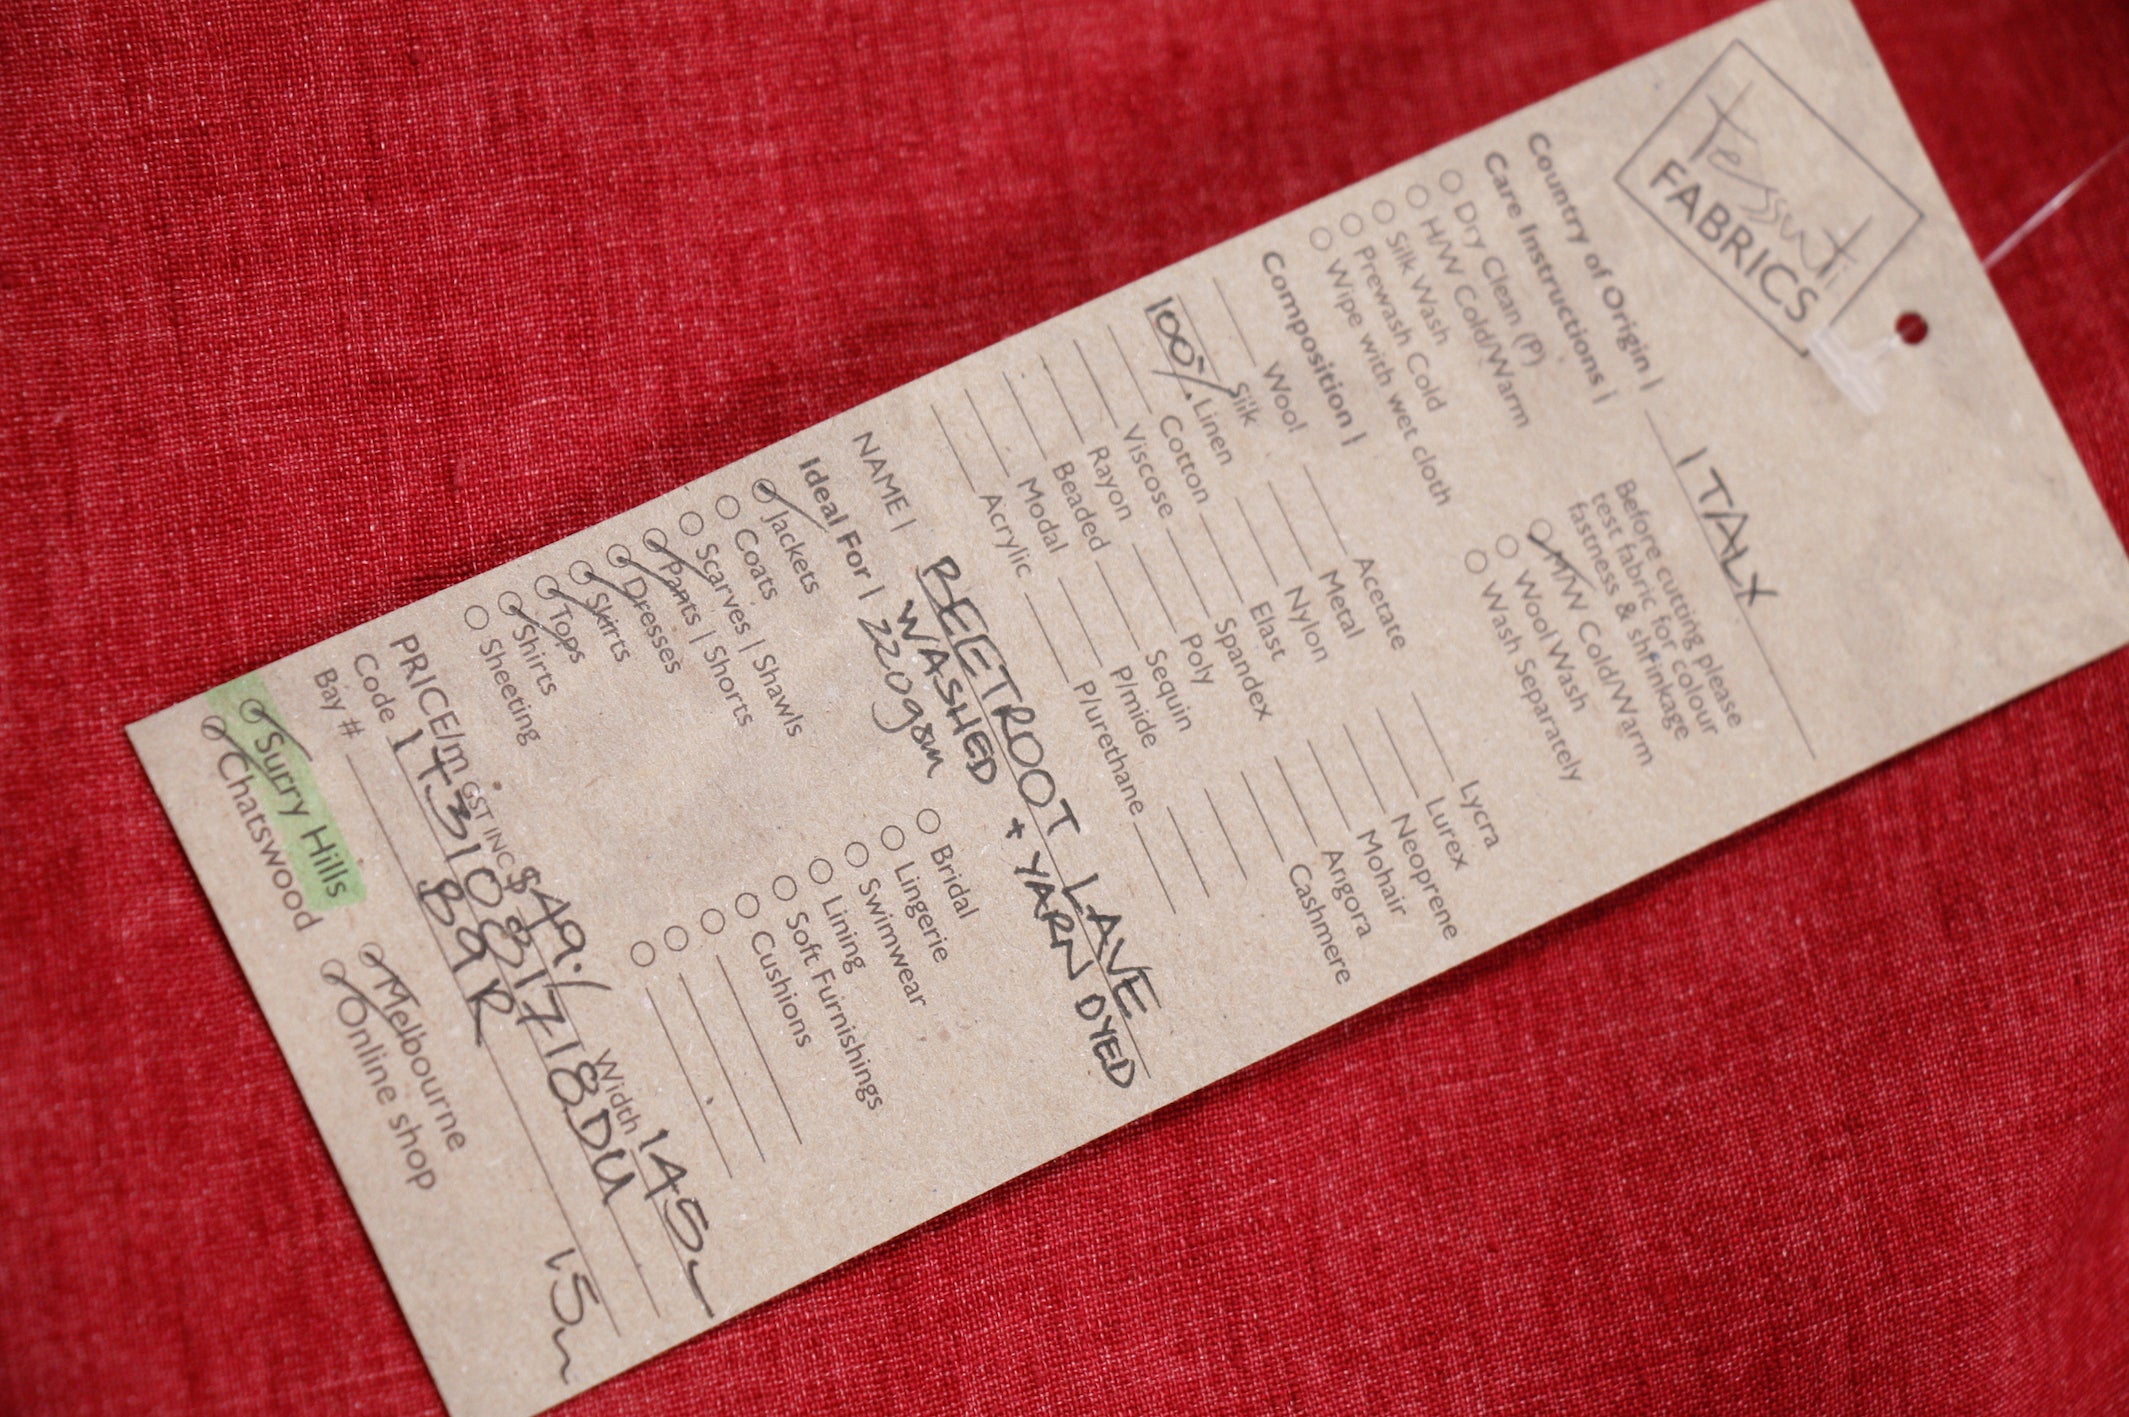 Tessuti
FABRICS
Country of Origin | ITALY
Care Instructions |
Dry Clean (P)
H/W Cold/Warm
Silk Wash
Prewash Cold
Wipe with wet cloth
Before cutting please
test fabric for colour
fastness & shrinkage
M/W Cold/Warm
Wool Wash
Wash Separately
Composition |
Wool
Silk
100% Linen
Cotton
Viscose
Rayon
Beaded
Modal
Acrylic
Acetate
Metal
Nylon
Elast
Spandex
Poly
Sequin
P/mide
P/urethane
Lycra
Lurex
Neoprene
Mohair
Angora
Cashmere
NAME | BEETROOT LAVE
WASHED + YARN DYED
Ideal For | 220gsm
Jackets
Coats
Scarves | Shawls
Pants | Shorts
Dresses
Skirts
Tops
Shirts
Sheeting
Bridal
Lingerie
Swimwear
Lining
Soft Furnishings
Cushions
PRICE/m GST INC $49./ Width 145
Code 1431088171
Bay # B9R 15m
Surry Hills
Chatswood
Melbourne
Online shop